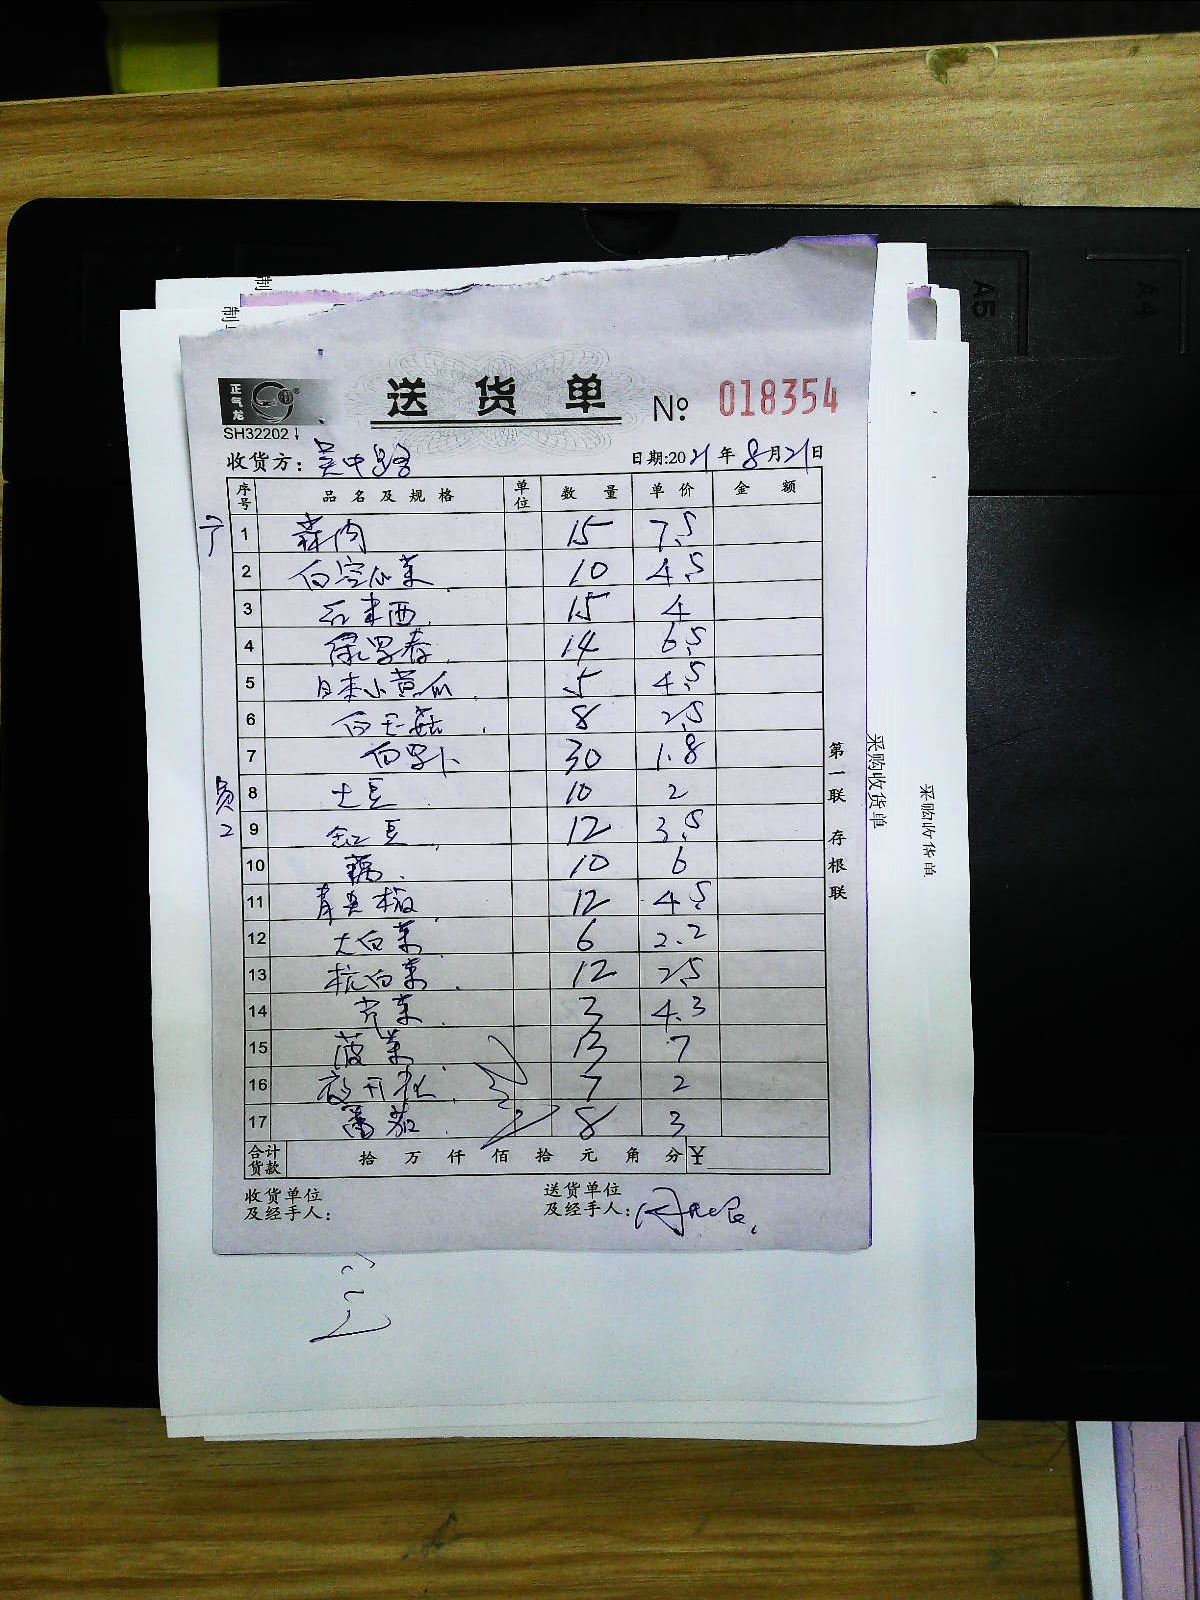 制
制
A5
A4
正气龙
送货单 № 018354
SH32202
收货方: 吴中路 日期:2021年8月21日
序号 品名及规格 单位 数量 单价 金额
1 蒜肉 15 7.5
2 白空瓜菜 10 4.5
3 红米西 15 4
4 14 6.5
5 日本小黄瓜 5 4.5
6 白玉菇 8 2.5
7 白罗卜 30 1.8
8 土豆 10 2
9 缸豆 12 3.5
10 藕 10 6
11 青尖椒 12 4.5
12 大白菜 6 2.2
13 杭白菜 12 2.5
14 芹菜 3 4.3
15 菠菜 13 7
16 7 2
17 番茄 8 3
合计货款 拾 万 仟 佰 拾 元 角 分 ¥
收货单位及经手人:
送货单位及经手人:
第一联 存根联
采购收货单
采购收货单